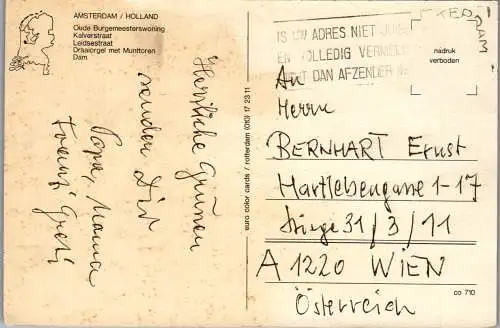 AMSTERDAM / HOLLAND
Oude Burgemeesterswoning
Kalverstraat
Leidsestraat
Draaiorgel met Munttoren
Dam
Herzliche Grüße
senden Dir
Papa, Mama
Franz, Greti
euro color cards / rotterdam (010) 17 23 11
IS UW ADRES NIET JUIST
EN VOLLEDIG VERMELD
DAN AFZENDER
nadruk
verboden
An
Herrn
BERNHART Ernst
Hartlebengasse 1-17
Stiege 31/3/11
A 1220 WIEN
Österreich
co 710